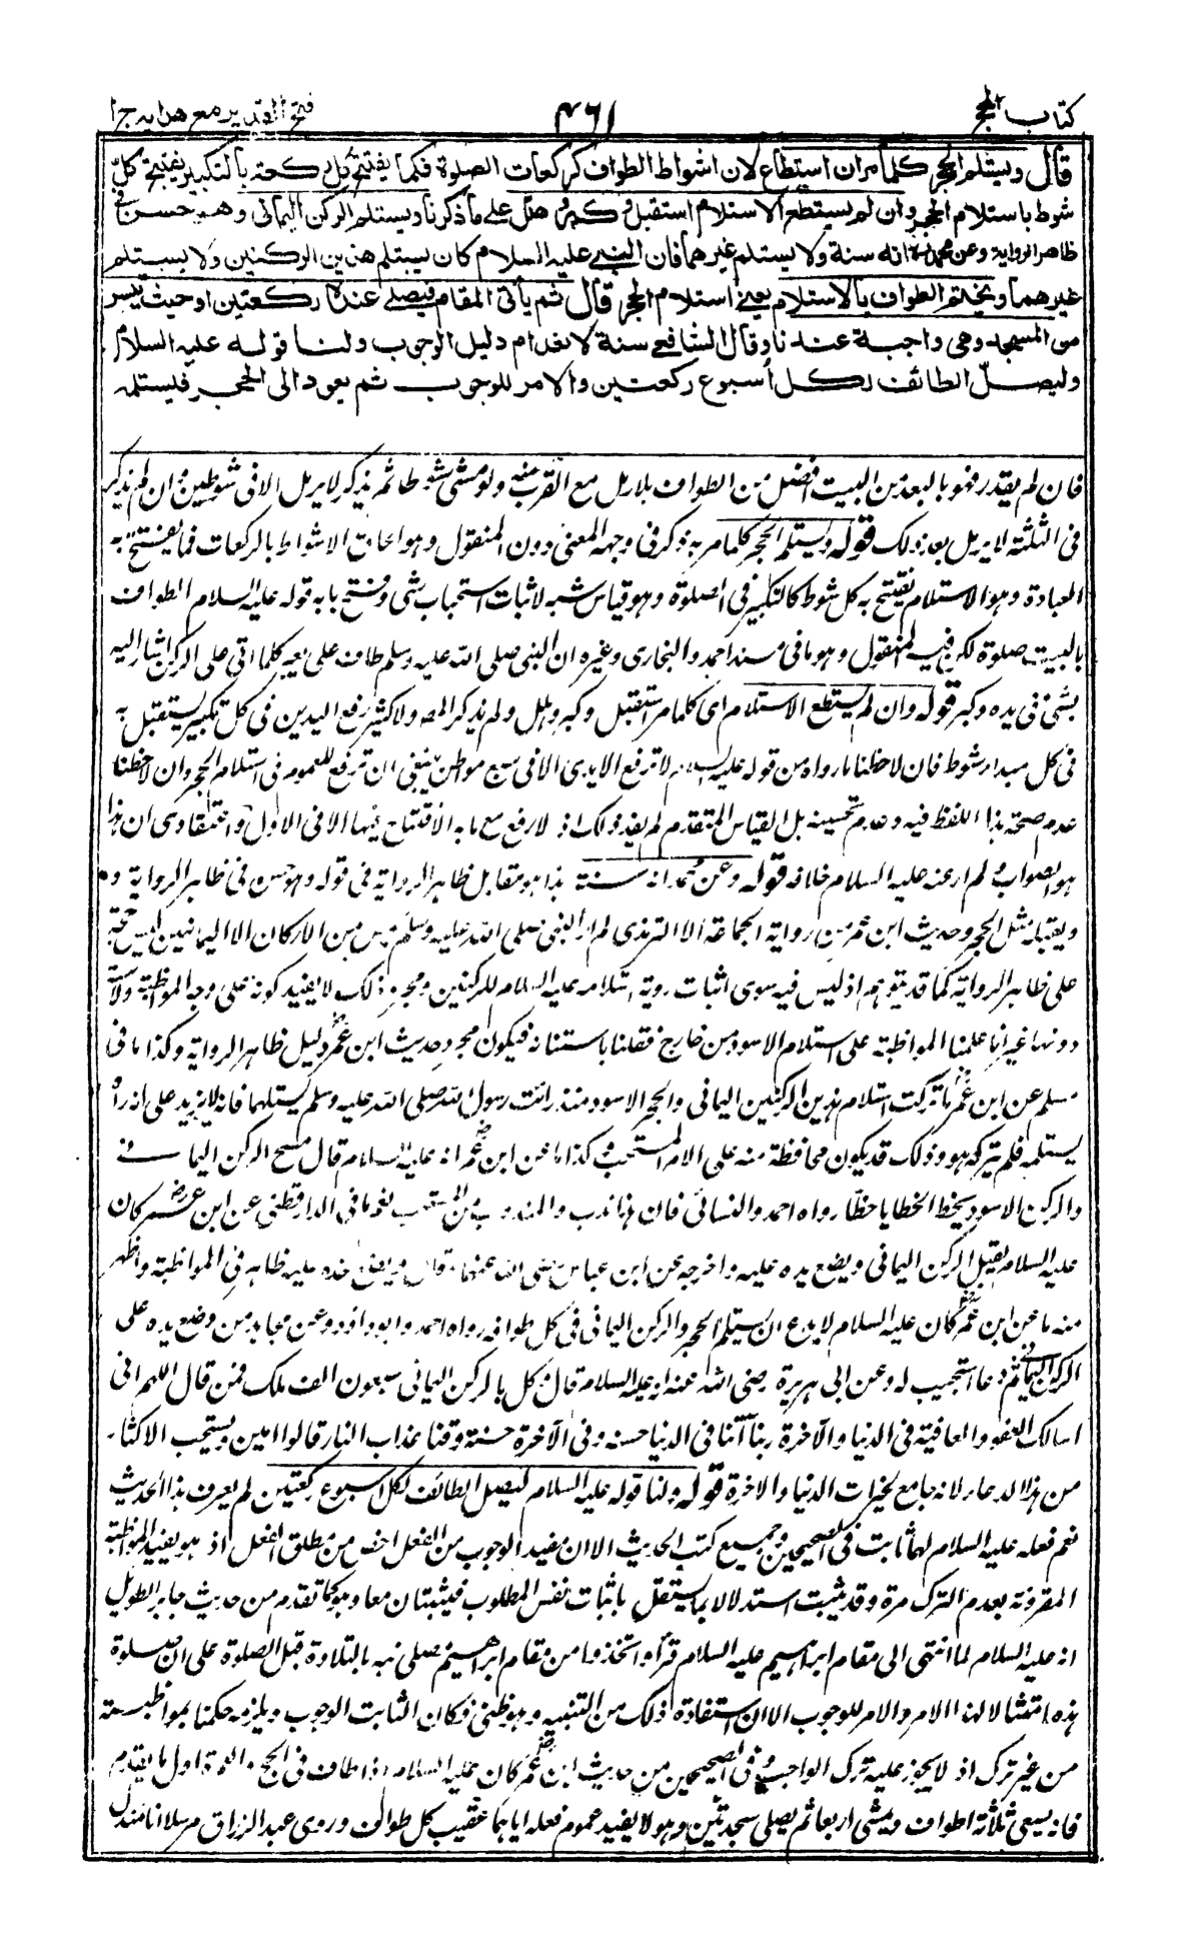 كتاب الحج
٤٦١
فتح القدير مع هدايه ج ا
قال ويستلم الحجر كلما مر ان استطاع لان اشواط الطواف كركعات الصلوة فكما يفتتح كل ركعة بالتكبير يفتتح كل
شوط باستلام الحجر وان لم يستطع الاستلام استقبل وكبر وهلل على ما ذكرنا ويستلم الركن اليمانى وهو حسن فى
ظاهر الرواية وعن محمد انه سنة ولا يستلم غيرهما فان النبى عليه السلام كان يستلم هذين الركنين ولا يستلم
غيرهما ويختم الطواف بالاستلام يعنى استلام الحجر قال ثم يأتى المقام فيصلى عنده ركعتين او حيث تيسر
من المسجد وهى واجبة عندنا وقال الشافعى سنة لانعدام دليل الوجوب ولنا قوله عليه السلام
وليصلّ الطائف لكل أسبوع ركعتين والامر للوجوب ثم يعود الى الحجر فيستلمه
فان لم يقدر فهو بالبعد من البيت افضل من الطواف بلا رمل مع القرب منه ولو مشى شوطا ثم تذكر لا يرمل الا فى شوطين وان لم يذكر
فى الثلثة لا يرمل بعد ذلك قوله ويستلم الحجر كلما مر به ذكر فى وجهه المعنى دون المنقول وهو الحاق الاشواط بالركعات فما يفتتح به
العبادة وهو الاستلام يفتتح به كل شوط كالتكبير فى الصلوة وهو قياس شبه لاثبات استحباب شئ وفتح بابه قوله عليه السلام الطواف
بالبيت صلوة لكن فيه المنقول وهو ما فى مسند احمد والبخارى وغيره ان النبى صلى الله عليه وسلم طاف على بعير كلما اتى على الركن اشار اليه
بشئ فى يده وكبر قوله وان لم يستطع الاستلام اى كلما مر استقبل وكبر وهلل ولم يذكر المص ولا كثير رفع اليدين فى كل تكبير يستقبل به
فى كل مبدأ شوط فان لاحظنا ما رواه من قوله عليه السلام لا ترفع الايدى الا فى سبع مواطن ينبغى ان ترفع للعموم فى استلام الحجر وان لاحظنا
عدم صحة هذا اللفظ فيه وعدم تحسينه بل القياس المتقدم لم يفد ذلك اذ لا رفع مع ما به الافتتاح فيها الا فى الاول واعتقادى ان هذا
هو الصواب ولم ار عنه عليه السلام خلافه قوله وعن محمد انه سنة هذا هو مقابل ظاهر الرواية فى قوله وهو حسن فى ظاهر الرواية
ويقبله مثل الحجر وحديث ابن عمر من رواية الجماعة الا الترمذى لم ار النبى صلى الله عليه وسلم يمس من الاركان الا اليمانيين ليس حجة
على ظاهر الرواية كما قد يتوهم اذ ليس فيه سوى اثبات رؤية استلامه عليه السلام للركنين ومجرد ذلك لا يفيد كونه على وجه المواظبة ولا سنة
دونها غير انا علمنا المواظبة على استلام الاسود من خارج فقلنا باستنانه فيكون مجرد حديث ابن عمر دليل ظاهر الرواية وكذا ما فى
مسلم عن ابن عمر ما تركت استلام هذين الركنين اليمانى والحجر الاسود منذ رأيت رسول الله صلى الله عليه وسلم يستلمهما فانه لا يزيد على انه رآه
يستلمه فلم يتركه هو وذلك قد يكون محافظة منه على الامر المستحب وكذا ما عن ابن عمر انه عليه السلام قال مسح الركن اليمانى
والركن الاسود يحط الخطايا حطا رواه احمد والنسائى فان هذا ندب والمندوب من المستحب نعم ما فى الدارقطنى عن ابن عمر كان
عليه السلام يقبل الركن اليمانى ويضع يده عليه واخرجه عن ابن عباس رضى الله عنهما قال ويضع خده عليه ظاهر فى المواظبة واظهر
منه ما عن ابن عمر كان عليه السلام لا يدع ان يستلم الحجر والركن اليمانى فى كل طوافه رواه احمد وابو داؤد وعن مجاهد من وضع يده على
الركن اليمانى ثم دعا استجيب له وعن ابى هريرة رضى الله عنه انه عليه السلام قال وكل بالركن اليمانى سبعون الف ملك فمن قال اللهم انى
اسالك العفو والعافية فى الدنيا والآخرة ربنا آتنا فى الدنيا حسنة وفى الآخرة حسنة وقنا عذاب النار قالوا امين ويستحب الاكثار
من هذا الدعاء لانه جامع لخيرات الدنيا والاخرة قوله ولنا قوله عليه السلام ليصل الطائف لكل اسبوع ركعتين لم يعرف هذا الحديث
نعم فعله عليه السلام لهما ثابت فى الصحيحين وجميع كتب الحديث الا ان مفيد الوجوب من الفعل اخص من مطلق الفعل اذ هو يفيد المواظبة
المقرونة بعدم الترك مرة وقد يثبت استدلالا بما يستقل باثبات نفس المطلوب فيثبتان معا وهو كما تقدم من حديث جابر الطويل
انه عليه السلام لما انتهى الى مقام ابراهيم عليه السلام قرأ واتخذوا من مقام ابراهيم مصلى نبه بالتلاوة قبل الصلوة على ان صلوته
هذه امتثالا لهذا الامر والامر للوجوب الا ان استفادة ذلك من التنبيه وهو ظنى فكان الثابت الوجوب ويلزمه حكمنا بمواظبته
من غير ترك اذ لا يجوز عليه ترك الواجب وفى الصحيحين من حديث ابن عمر كان عليه السلام اذا طاف فى الحج والعمرة اول ما يقدم
فانه يسعى ثلاثة اطواف ويمشى اربعا ثم يصلى سجدتين وهو لا يفيد عموم فعله اياهما عقيب كل طواف وروى عبد الرزاق مرسلا انا مندل